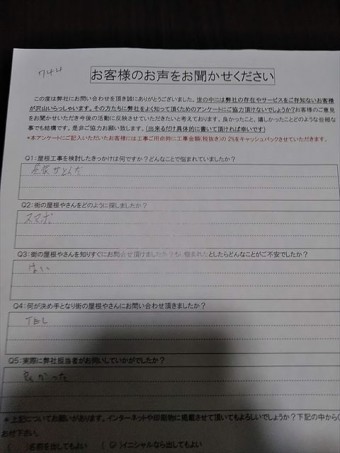 お客様のお声をお聞かせください
この度は弊社にお問い合わせを頂き誠にありがとうございました。世の中には弊社の存在やサービスをご存知ないお客様
が沢山いらっしゃいます。その方たちに弊社をよく知って頂くためのアンケートにご協力頂けないでしょうか？お客様のご意見
をお聞かせいただき今後の活動に反映させていただきたいと考えております。良かったこと、嬉しかったことどのような些細な
事でも結構です。是非ご協力お願い致します。（出来るだけ具体的に書いて頂ければ幸いです）
*本アンケートにご記入いただいたお客様には工事ご用命時に工事金額(税抜き)の2%をキャッシュバックさせていただきます。
Q1：屋根工事を検討したきっかけは何ですか？どんなことで悩まれていましたか？
Q2：街の屋根やさんをどのように探しましたか？
スマホ
Q3：街の屋根やさんを知りすぐにお問合せ頂けましたか？
としたらどんなことがご不安でしたか？
はい
Q4：何が決め手となり街の屋根やさんにお問い合わせ頂きましたか？
TEL
Q5：実際に弊社担当者がお伺いしていかがでしたか？
良かった
*上記についてお願いがあります。インターネットや印刷物に掲載させて頂いてもよろしいでしょうか？下記の中から
お付下さい。
名前を出してもよい
イニシャルなら出してもよい